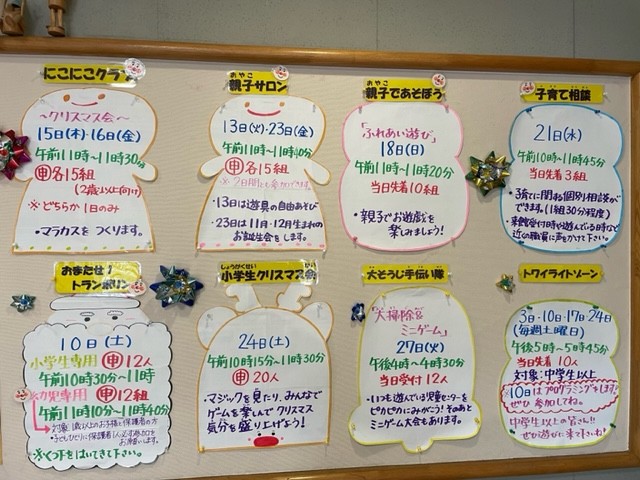 にこにこクラブ
～クリスマス会～
15日(木)・16日(金)
午前11時～11時30分
申各15組
(2歳以上向け)
※どちらか1日のみ
・マラカスをつくります。
おやこ
親子サロン
13日(火)・23日(金)
午前11時～11時40分
申各15組
※2日間とも参加できます。
・13日は遊具の自由あそび
・23日は11月・12月生まれの
お誕生会をします。
おやこ
親子であそぼう
「ふれあい遊び」
18日(日)
午前11時～11時20分
当日先着10組
・親子でお遊戯を
楽しみましょう!
子育て相談
21日(水)
午前10時～11時45分
当日先着3組
・子育てに関わる個別相談が
できます。(1組30分程度)
・来館受付時や遊んでいる時など
近くの職員に声をかけて下さい。
おまたせ!
トランポリン
10日(土)
小学生専用 申12人
午前10時30分～11時
幼児専用 申12組
午前11時10分～11時40分
※くつ下をはいてきて下さい。
しょうがくせい
小学生クリスマス会
24日(土)
午前10時15分～11時30分
申20人
・マジックを見たり、みんなで
ゲームを楽しんでクリスマス
気分を盛り上げよう!
大そうじ手伝い隊
「大掃除&
ミニゲーム」
27日(火)
午後4時～4時30分
当日受付12人
・いつも遊んでいる児童センターを
ピカピカにみがこう!そのあと
ミニゲーム大会もあります。
トワイライトゾーン
3日・10日・17日・24日
(毎週土曜日)
午後5時～5時45分
当日先着10人
対象:中学生以上
※10日はプログラミングもします。
ぜひ参加してね。
中学生以上の皆さん!!
ぜひ遊びに来て下さいね!